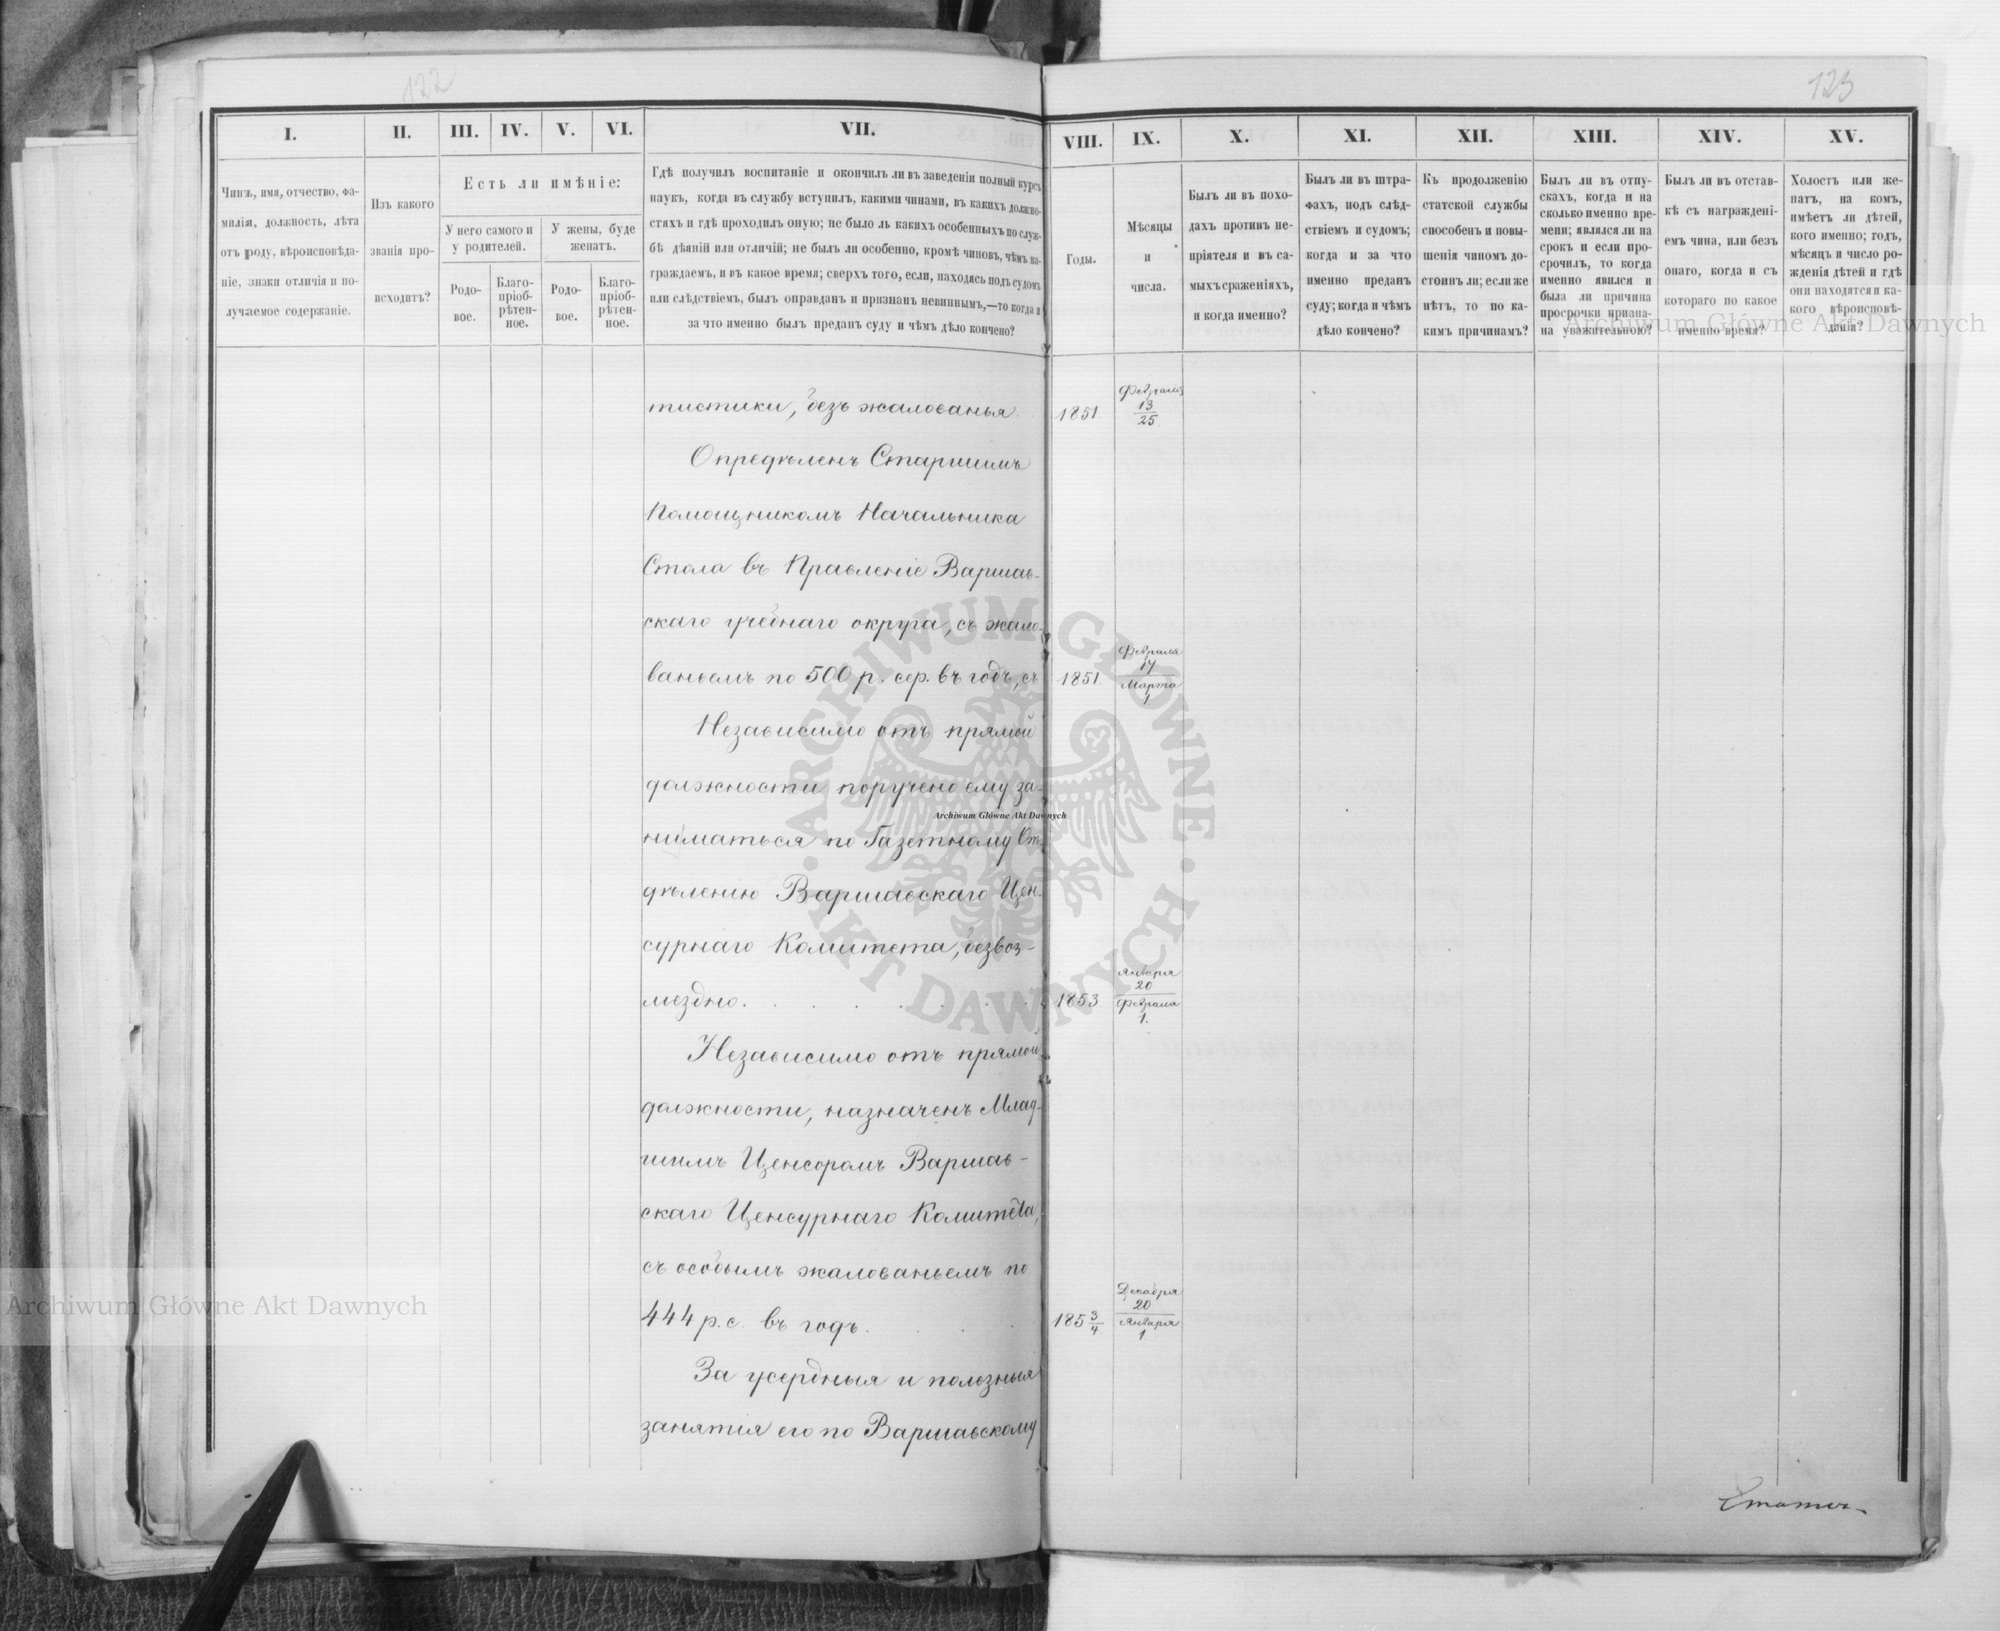 122
123
I.
II.
III.
IV.
V.
VI.
VII.
VIII.
IX.
X.
XI.
XII.
XIII.
XIV.
XV.
Чинъ, имя, отчество, фа-
милія, должность, лѣта
отъ роду, вѣроисповѣда-
ніе, знаки отличія и по-
лучаемое содержаніе.
Изъ какого
званія про-
исходитъ?
Есть ли имѣніе:
У него самого и
у родителей.
У жены, буде
женатъ.
Родо-
вое.
Благо-
пріоб-
рѣтен-
ное.
Родо-
вое.
Благо-
пріоб-
рѣтен-
ное.
Гдѣ получилъ воспитаніе и окончилъ ли въ заведеніи полный курсъ
наукъ, когда въ службу вступилъ, какими чинами, въ какихъ должно-
стяхъ и гдѣ проходилъ оную; не было ль какихъ особенныхъ по служ-
бѣ дѣяній или отличій; не былъ ли особенно, кромѣ чиновъ, чѣмъ на-
граждаемъ, и въ какое время; сверхъ того, если, находясь подъ судомъ
или слѣдствіемъ, былъ оправданъ и признанъ невиннымъ,—то когда и
за что именно былъ преданъ суду и чѣмъ дѣло кончено?
Годы.
Мѣсяцы
и
числа.
Былъ ли въ похо-
дахъ противъ не-
пріятеля и въ са-
мыхъ сраженіяхъ,
и когда именно?
Былъ ли въ штра-
фахъ, подъ слѣд-
ствіемъ и судомъ;
когда и за что
именно преданъ
суду; когда и чѣмъ
дѣло кончено?
Къ продолженію
статской службы
способенъ и повы-
шенія чиномъ до-
стоинъ ли; если же
нѣтъ, то по ка-
кимъ причинамъ?
Былъ ли въ отпу-
скахъ, когда и на
сколько именно вре-
мени; являлся ли на
срокъ и если про-
срочилъ, то когда
именно явился и
была ли причина
просрочки признa-
на уважительною?
Былъ ли въ отстав-
кѣ съ награждені-
емъ чина, или безъ
онаго, когда и съ
котораго по какое
именно время?
Холостъ или же-
натъ, на комъ,
имѣетъ ли дѣтей,
кого именно; годъ,
мѣсяцъ и число ро-
жденія дѣтей и гдѣ
они находятся и ка-
кого вѣроисповѣ-
данія?
Archiwum Główne Akt Dawnych
тистики, безъ жалованья
1851
Февраля
13
25
Опредѣленъ Старшимъ
Помощникомъ Начальника
Стола въ Правленіе Варшав-
скаго учебнаго округа, съ жало-
ваньемъ по 500 р. сер. въ годъ, съ
1851
Февраля
17
Марта
1
Независимо отъ прямой
должности поручено ему за-
ниматься по Газетному От-
дѣленію Варшавскаго Цен-
сурнаго Комитета, безвоз-
мездно.
1853
Января
20
Февраля
1.
Независимо отъ прямой
должности, назначенъ Млад-
шимъ Ценсоромъ Варшав-
скаго Ценсурнаго Комитета,
съ особымъ жалованьемъ по
444 р. с. въ годъ.
185 3/4
Декабря
20
Января
1
За усердныя и полезныя
занятія его по Варшавскому
ARCHIWUM GŁÓWNE · AKT DAWNYCH ·
Archiwum Główne Akt Dawnych
Archiwum Główne Akt Dawnych